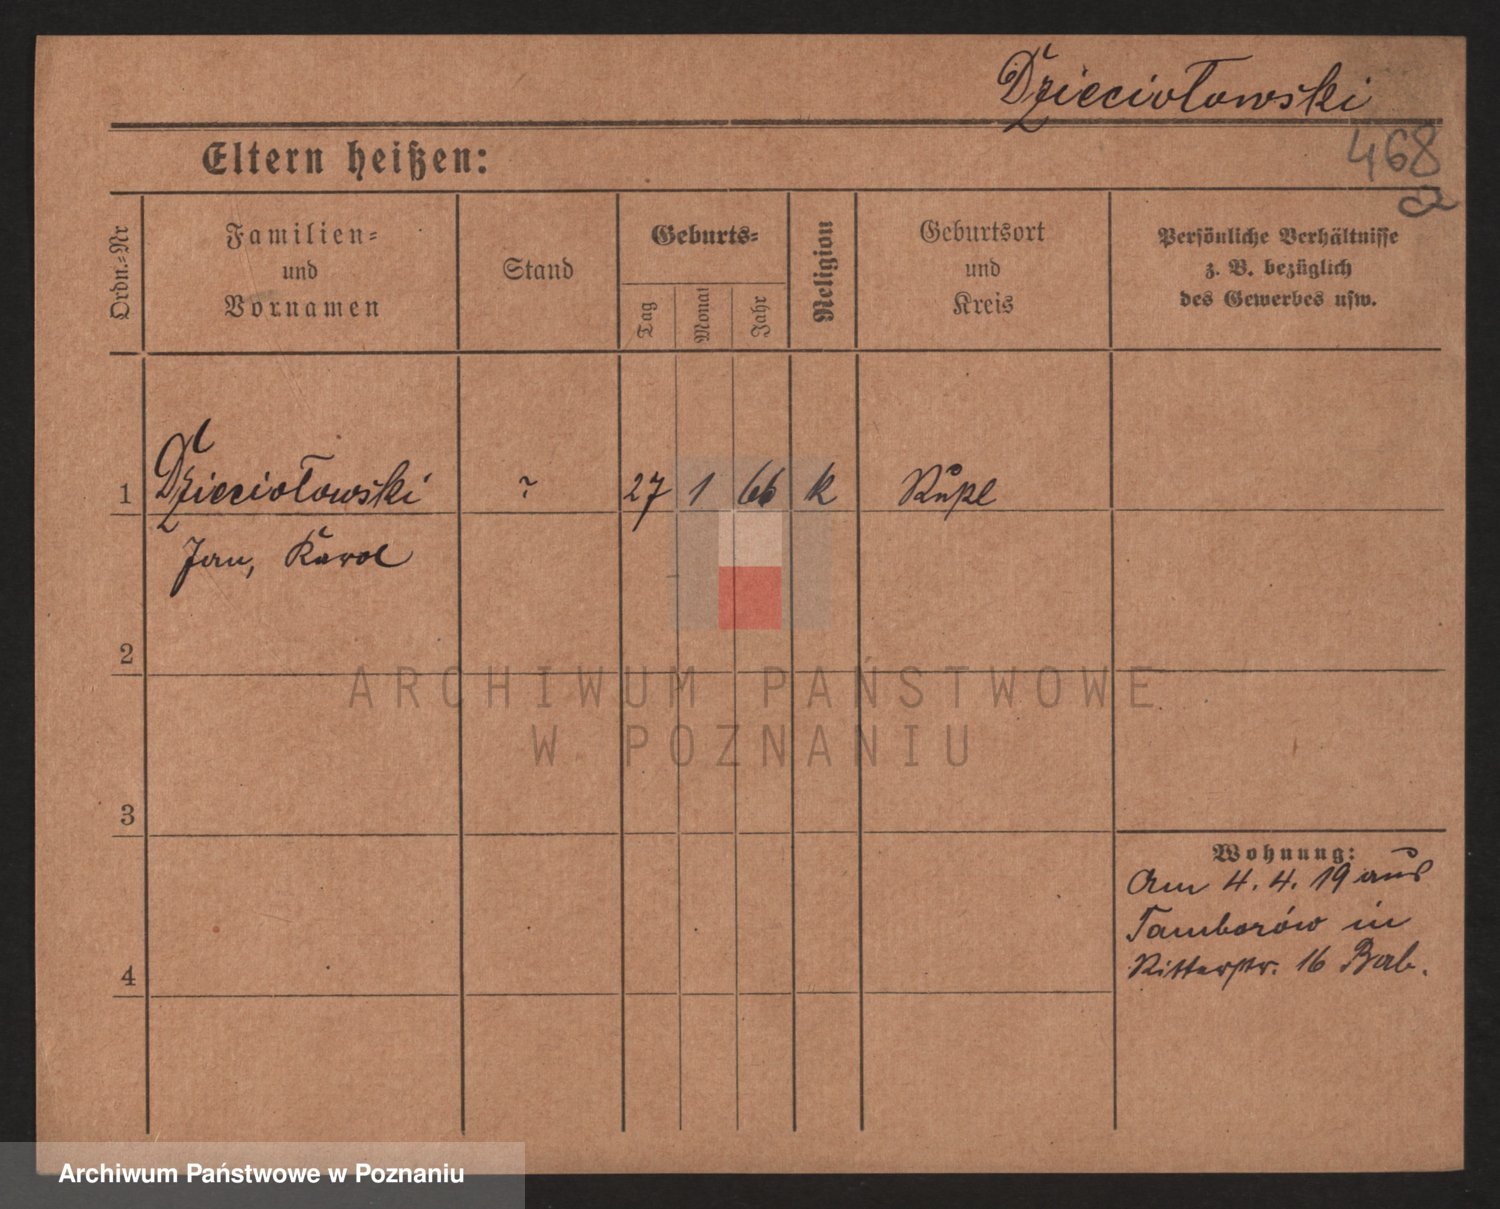 Dzieciołowski
468
Eltern heißen:
Ordn.-Nr
Familien-
und
Vornamen
Stand
Geburts-
Tag
Monat
Jahr
Religion
Geburtsort
und
Kreis
Persönliche Verhältnisse
z. B. bezüglich
des Gewerbes usw.
1 Dzieciołowski ? 27 1 66 k
Jan, Karol
2
3
4
Wohnung:
Am 4. 4. 19 aus
Tamborów in
Ritterstr. 16 Bab.
ARCHIWUM PAŃSTWOWE
W POZNANIU
Archiwum Państwowe w Poznaniu